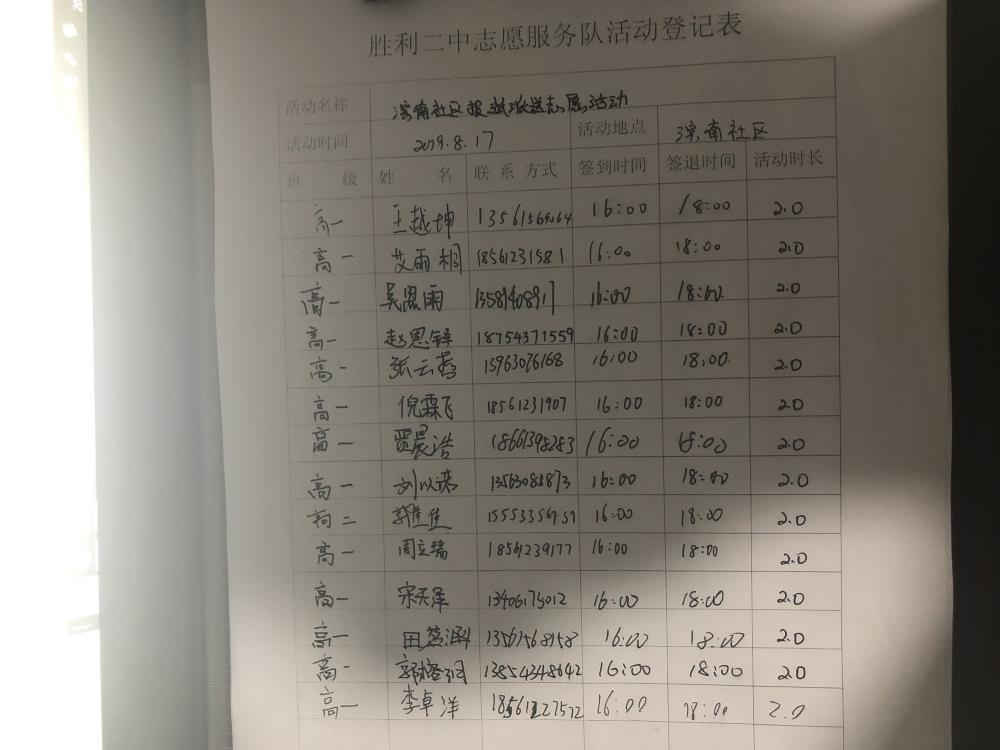 胜利二中志愿服务队活动登记表
活动名称 滨南社区 志愿活动
活动时间 2019.8.17 活动地点 滨南社区
班 级 姓 名 联 系 方式 签到时间 签退时间 活动时长
高一 王越坤 13561569064 16:00 18:00 2.0
高一 艾雨桐 18561231581 16:00 18:00 2.0
高一 吴恩雨 16:00 18:00 2.0
高一 赵恩铎 18754371559 16:00 18:00 2.0
高一 张云哲 13963076168 16:00 18:00 2.0
高一 倪霖飞 18561231907 16:00 18:00 2.0
高一 贾晨浩 18661398283 16:00 18:00 2.0
高一 刘以诺 13563088873 16:00 18:00 2.0
高二 16:00 18:00 2.0
高一 周立瑞 18561239177 16:00 18:00 2.0
高一 宋天泽 13406175012 16:00 18:00 2.0
高一 田茗涵 13561568158 16:00 18:00 2.0
高一 13854348642 16:00 18:00 2.0
高一 李卓洋 18561227572 16:00 18:00 2.0